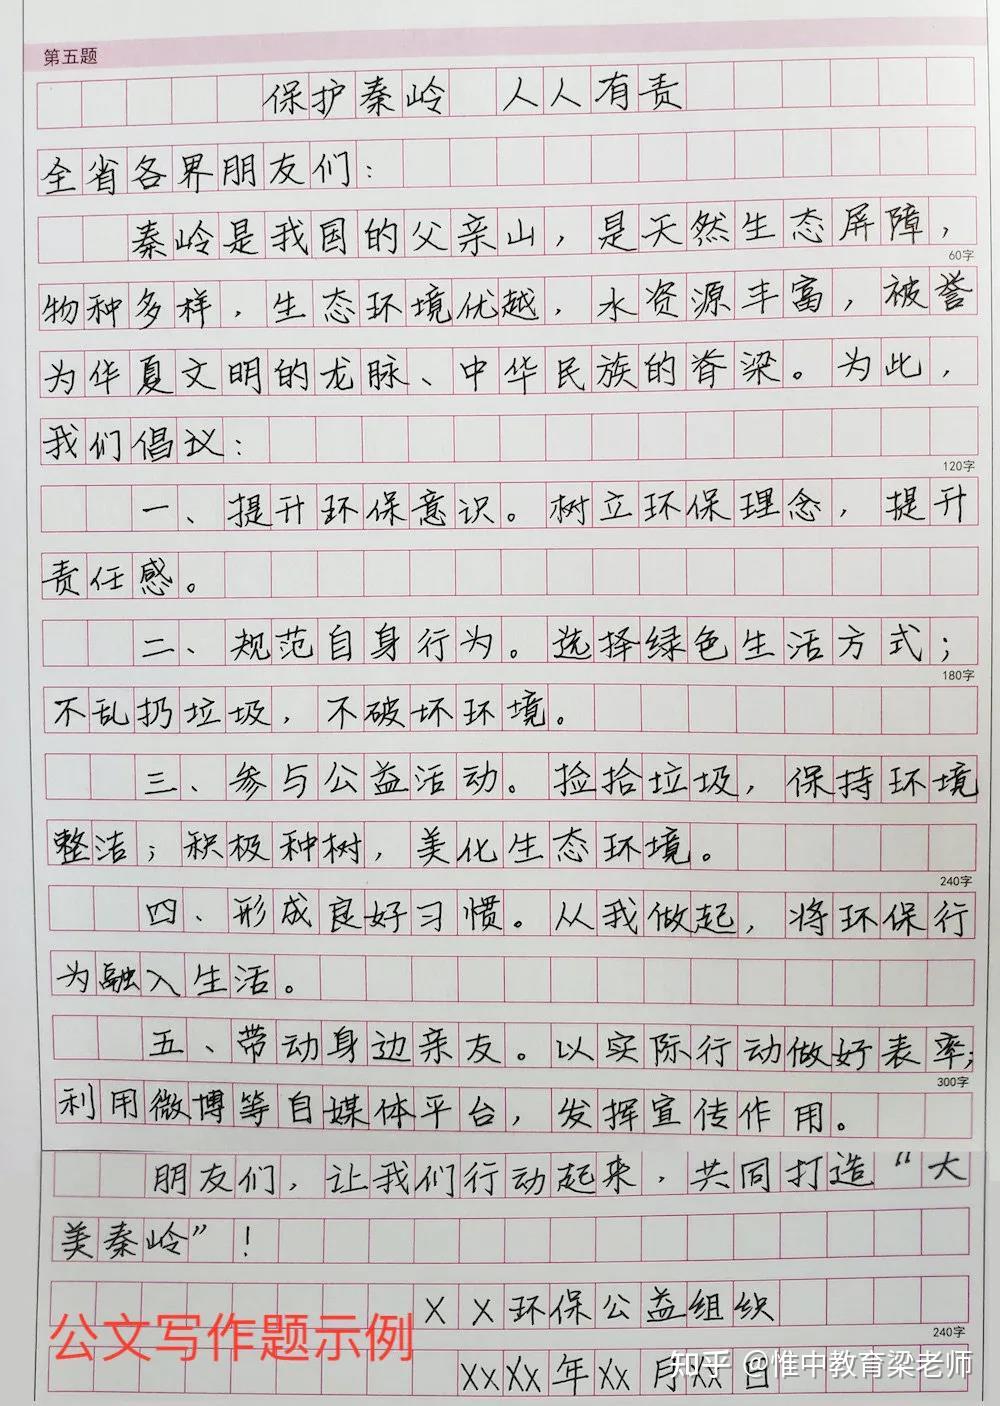 第五题
保护秦岭 人人有责
全省各界朋友们：
秦岭是我国的父亲山，是天然生态屏障，
60字
物种多样，生态环境优越，水资源丰富，被誉
为华夏文明的龙脉、中华民族的脊梁。为此，
我们倡议：
120字
一、提升环保意识。树立环保理念，提升
责任感。
二、规范自身行为。选择绿色生活方式；
180字
不乱扔垃圾，不破坏环境。
三、参与公益活动。捡拾垃圾，保持环境
整洁；积极种树，美化生态环境。
240字
四、形成良好习惯。从我做起，将环保行
为融入生活。
五、带动身边亲友。以实际行动做好表率；
300字
利用微博等自媒体平台，发挥宣传作用。
朋友们，让我们行动起来，共同打造“大
美秦岭”！
XX环保公益组织
240字
公文写作题示例
XXXX年XX月XX日
知乎 @惟中教育梁老师